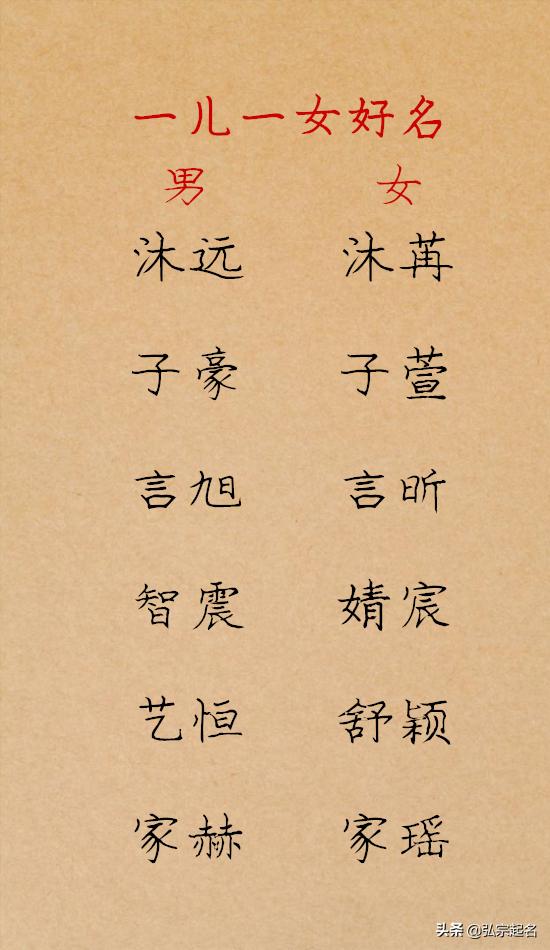 一儿一女好名
男 女
沐远 沐苒
子豪 子萱
言旭 言昕
智震 婧宸
艺恒 舒颖
家赫 家瑶
头条 @弘宗起名